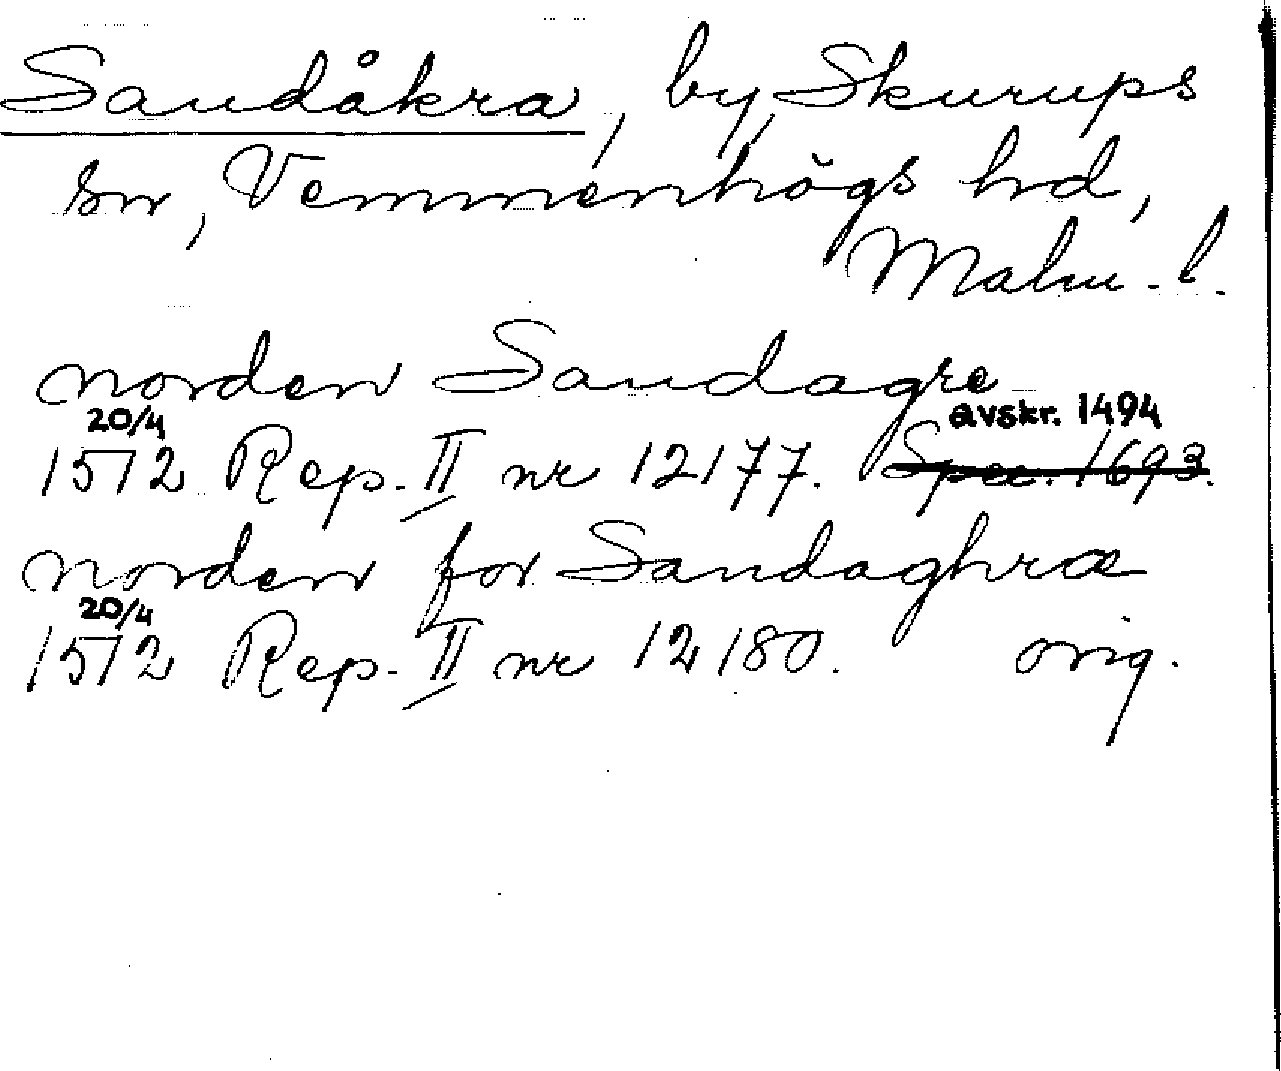 Sandåkra, by, Skurups
sn, Vemmenhögs hd,
Malm. l.
norden Sandagre
20/4 avskr. 1494
1512 Rep. II nr 12177. Spec. 1693.
norden for Sandaghræ
20/4
1512 Rep. II nr 12180. orig.